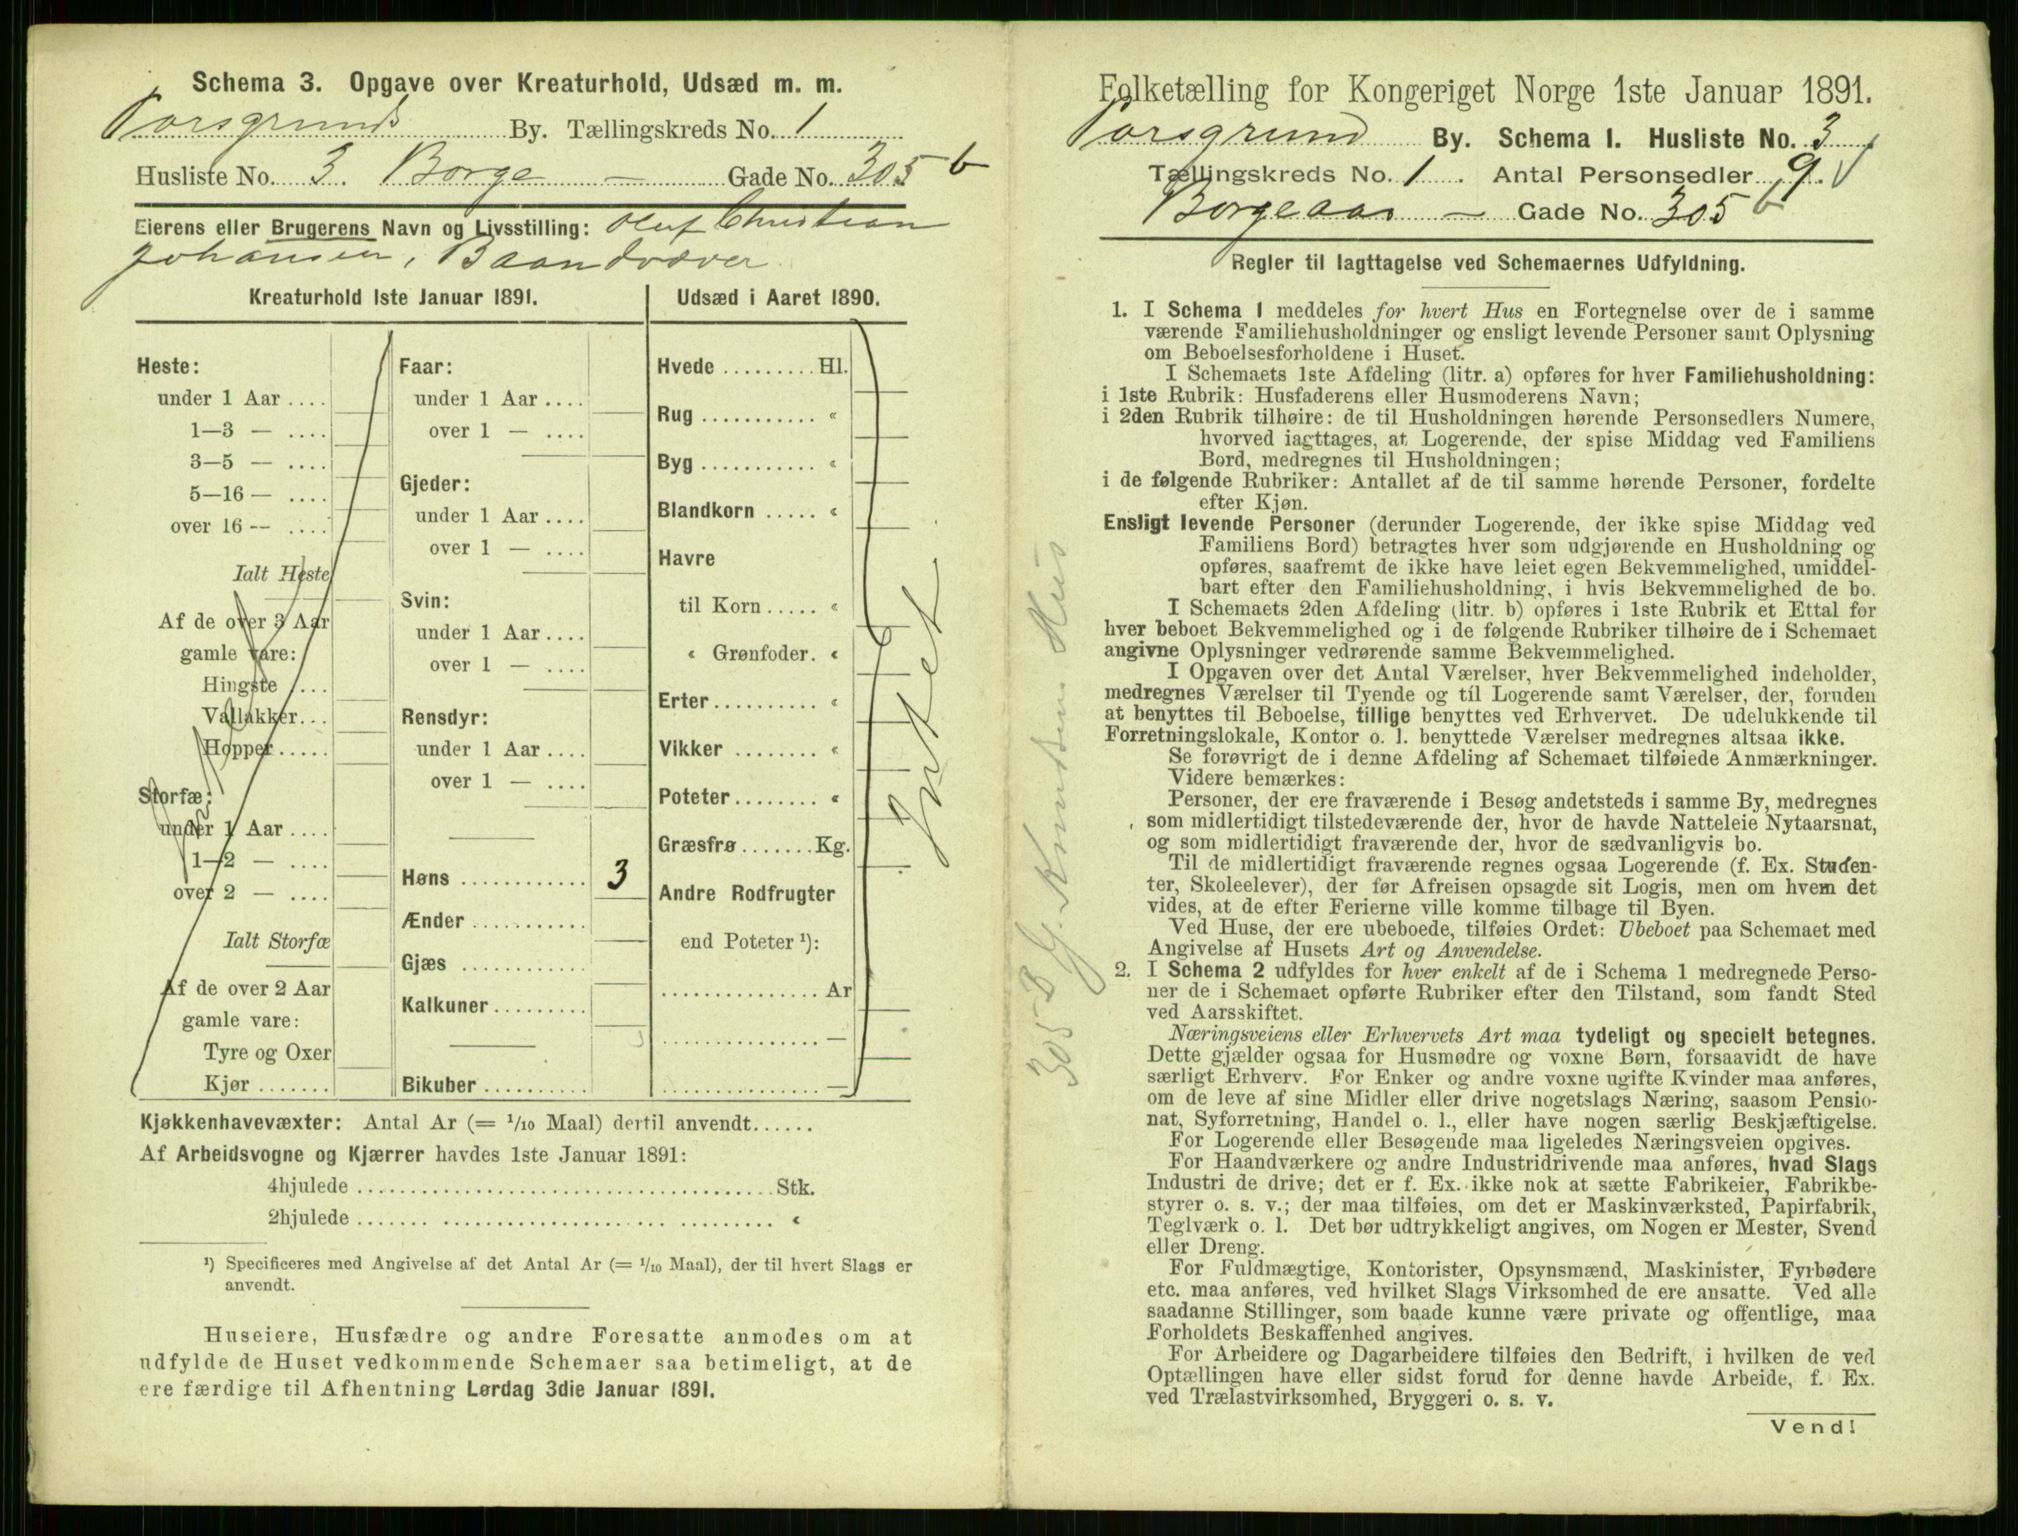 Schema 3. Opgave over Kreaturhold, Udsæd m. m.
Porsgrunds By. Tællingskreds No. 1
Husliste No. 3. Borge — Gade No. 305 b
Eierens eller Brugerens Navn og Livsstilling: Oluf Christian
Johansen, Baandvæver.
Kreaturhold 1ste Januar 1891.
Heste:
under 1 Aar ....
1—3 — ....
3—5 — ....
5—16 — ....
over 16 — ....
Ialt Heste
Af de over 3 Aar
gamle vare:
Hingste ....
Vallakker...
Hopper.....
Storfæ:
under 1 Aar ....
1—2 — ....
over 2 — ....
Ialt Storfæ
Af de over 2 Aar
gamle vare:
Tyre og Oxer
Kjør .......
Faar:
under 1 Aar ....
over 1 — ....
Gjeder:
under 1 Aar ....
over 1 — ....
Svin:
under 1 Aar ....
over 1 — ....
Rensdyr:
under 1 Aar ....
over 1 — ....
Høns ............ 3
Ænder ...........
Gjæs ............
Kalkuner..........
Bikuber ..........
Udsæd i Aaret 1890.
Hvede ......... Hl.
Rug ........... «
Byg ........... «
Blandkorn ..... «
Havre
til Korn ..... «
« Grønfoder. «
Erter.......... «
Vikker ........ «
Poteter........ «
Græsfrø ....... Kg.
Andre Rodfrugter
end Poteter ¹):
............... Ar
............... —
............... —
Intet
Kjøkkenhavevæxter: Antal Ar (= 1/10 Maal) dertil anvendt......
Af Arbeidsvogne og Kjærrer havdes 1ste Januar 1891:
4hjulede ....................................... Stk.
2hjulede ....................................... «
¹) Specificeres med Angivelse af det Antal Ar (= 1/10 Maal), der til hvert Slags er
anvendt.
Huseiere, Husfædre og andre Foresatte anmodes om at
udfylde de Huset vedkommende Schemaer saa betimeligt, at de
ere færdige til Afhentning Lørdag 3die Januar 1891.
305 B G. Knudsen Huus
Folketælling for Kongeriget Norge 1ste Januar 1891.
Porsgrund By. Schema 1. Husliste No. 3
Tællingskreds No. 1. Antal Personsedler 9. √
Borgeaas — Gade No. 305 b
Regler til Iagttagelse ved Schemaernes Udfyldning.
1. I Schema 1 meddeles for hvert Hus en Fortegnelse over de i samme
værende Familiehusholdninger og ensligt levende Personer samt Oplysning
om Beboelsesforholdene i Huset.
I Schemaets 1ste Afdeling (litr. a) opføres for hver Familiehusholdning:
i 1ste Rubrik: Husfaderens eller Husmoderens Navn;
i 2den Rubrik tilhøire: de til Husholdningen hørende Personsedlers Numere,
hvorved iagttages, at Logerende, der spise Middag ved Familiens
Bord, medregnes til Husholdningen;
i de følgende Rubriker: Antallet af de til samme hørende Personer, fordelte
efter Kjøn.
Ensligt levende Personer (derunder Logerende, der ikke spise Middag ved
Familiens Bord) betragtes hver som udgjørende en Husholdning og
opføres, saafremt de ikke have leiet egen Bekvemmelighed, umiddel-
bart efter den Familiehusholdning, i hvis Bekvemmelighed de bo.
I Schemaets 2den Afdeling (litr. b) opføres i 1ste Rubrik et Ettal for
hver beboet Bekvemmelighed og i de følgende Rubriker tilhøire de i Schemaet
angivne Oplysninger vedrørende samme Bekvemmelighed.
I Opgaven over det Antal Værelser, hver Bekvemmelighed indeholder,
medregnes Værelser til Tyende og til Logerende samt Værelser, der, foruden
at benyttes til Beboelse, tillige benyttes ved Erhvervet. De udelukkende til
Forretningslokale, Kontor o. l. benyttede Værelser medregnes altsaa ikke.
Se forøvrigt de i denne Afdeling af Schemaet tilføiede Anmærkninger.
Videre bemærkes:
Personer, der ere fraværende i Besøg andetsteds i samme By, medregnes
som midlertidigt tilstedeværende der, hvor de havde Natteleie Nytaarsnat,
og som midlertidigt fraværende der, hvor de sædvanligvis bo.
Til de midlertidigt fraværende regnes ogsaa Logerende (f. Ex. Studen-
ter, Skoleelever), der før Afreisen opsagde sit Logis, men om hvem det
vides, at de efter Ferierne ville komme tilbage til Byen.
Ved Huse, der ere ubeboede, tilføies Ordet: Ubeboet paa Schemaet med
Angivelse af Husets Art og Anvendelse.
2. I Schema 2 udfyldes for hver enkelt af de i Schema 1 medregnede Perso-
ner de i Schemaet opførte Rubriker efter den Tilstand, som fandt Sted
ved Aarsskiftet.
Næringsveiens eller Erhvervets Art maa tydeligt og specielt betegnes.
Dette gjælder ogsaa for Husmødre og voxne Børn, forsaavidt de have
særligt Erhverv. For Enker og andre voxne ugifte Kvinder maa anføres,
om de leve af sine Midler eller drive nogetslags Næring, saasom Pensio-
nat, Syforretning, Handel o. l., eller have nogen særlig Beskjæftigelse.
For Logerende eller Besøgende maa ligeledes Næringsveien opgives.
For Haandværkere og andre Industridrivende maa anføres, hvad Slags
Industri de drive; det er f. Ex. ikke nok at sætte Fabrikeier, Fabrikbe-
styrer o. s. v.; der maa tilføies, om det er Maskinværksted, Papirfabrik,
Teglværk o. l. Det bør udtrykkeligt angives, om Nogen er Mester, Svend
eller Dreng.
For Fuldmægtige, Kontorister, Opsynsmænd, Maskinister, Fyrbødere
etc. maa anføres, ved hvilket Slags Virksomhed de ere ansatte. Ved alle
saadanne Stillinger, som baade kunne være private og offentlige, maa
Forholdets Beskaffenhed angives.
For Arbeidere og Dagarbeidere tilføies den Bedrift, i hvilken de ved
Optællingen have eller sidst forud for denne havde Arbeide, f. Ex.
ved Trælastvirksomhed, Bryggeri o. s. v.
Vend!